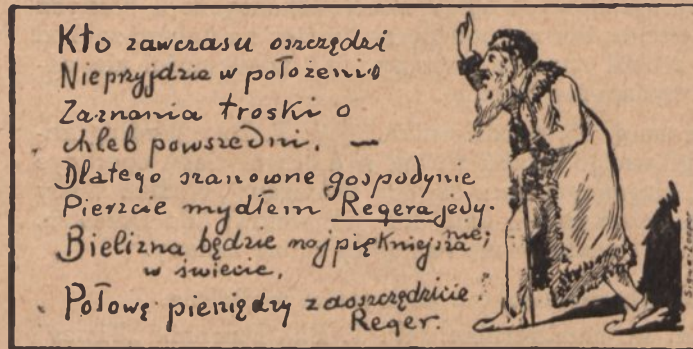 Kto zawczasu oszczędzi
Nieprzyjdzie w położenie
Zaznania troski o
chleb powszedni. —
Dlatego szanowne gospodynie
Pierzcie mydłem Regera jedy-
nie;
Bielizna będzie najpiękniejsza
w świecie,
Połowę pieniędzy zaoszczędzicie.
Reger.